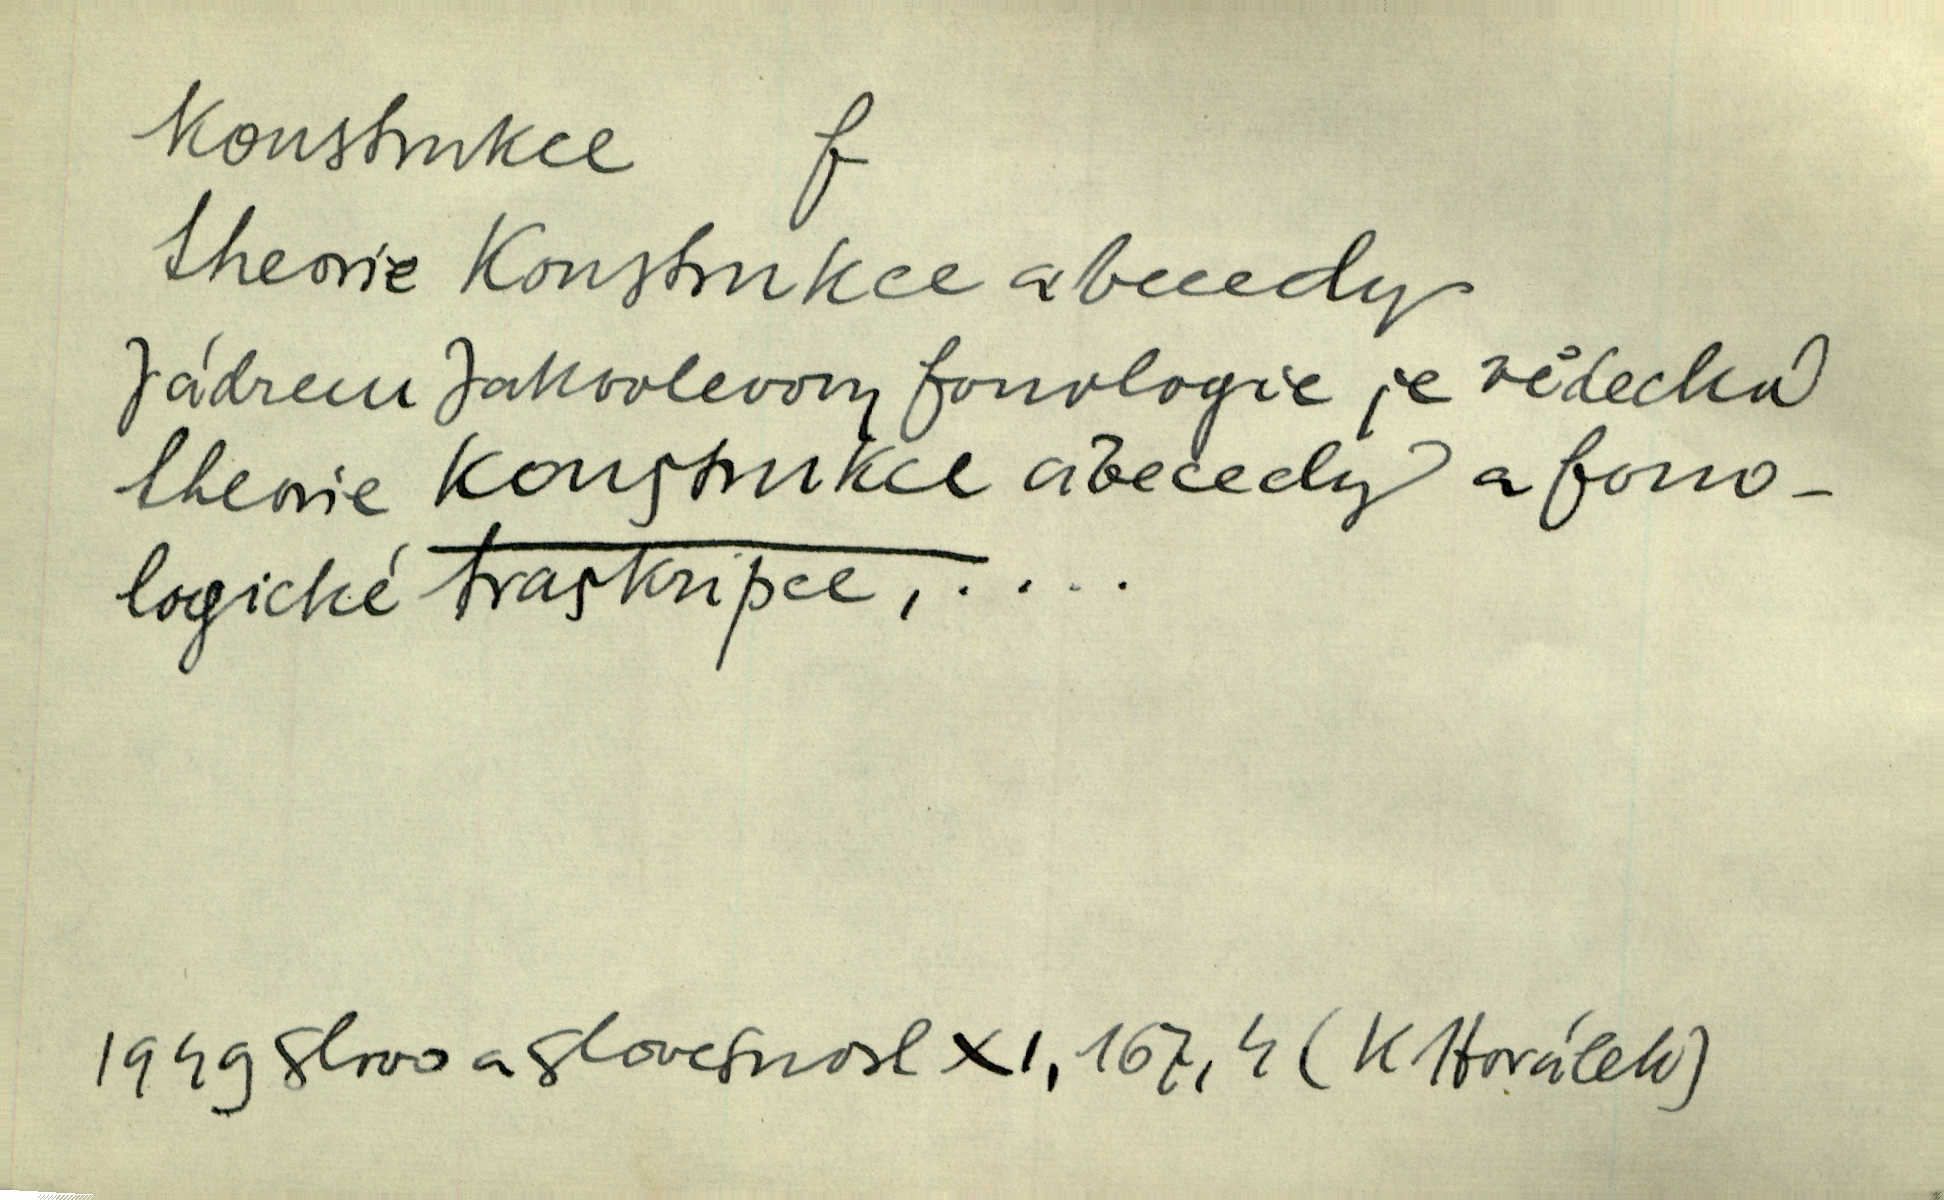 Konstrukce f
theorie konstrukce abecedy
Jádrem Jakovlevovy fonologie je vědecká
theorie konstrukce abecedy a fono-
logické traskripce, ....
1949 Slovo a slovesnost XI, 167, 4 (K Horálek)